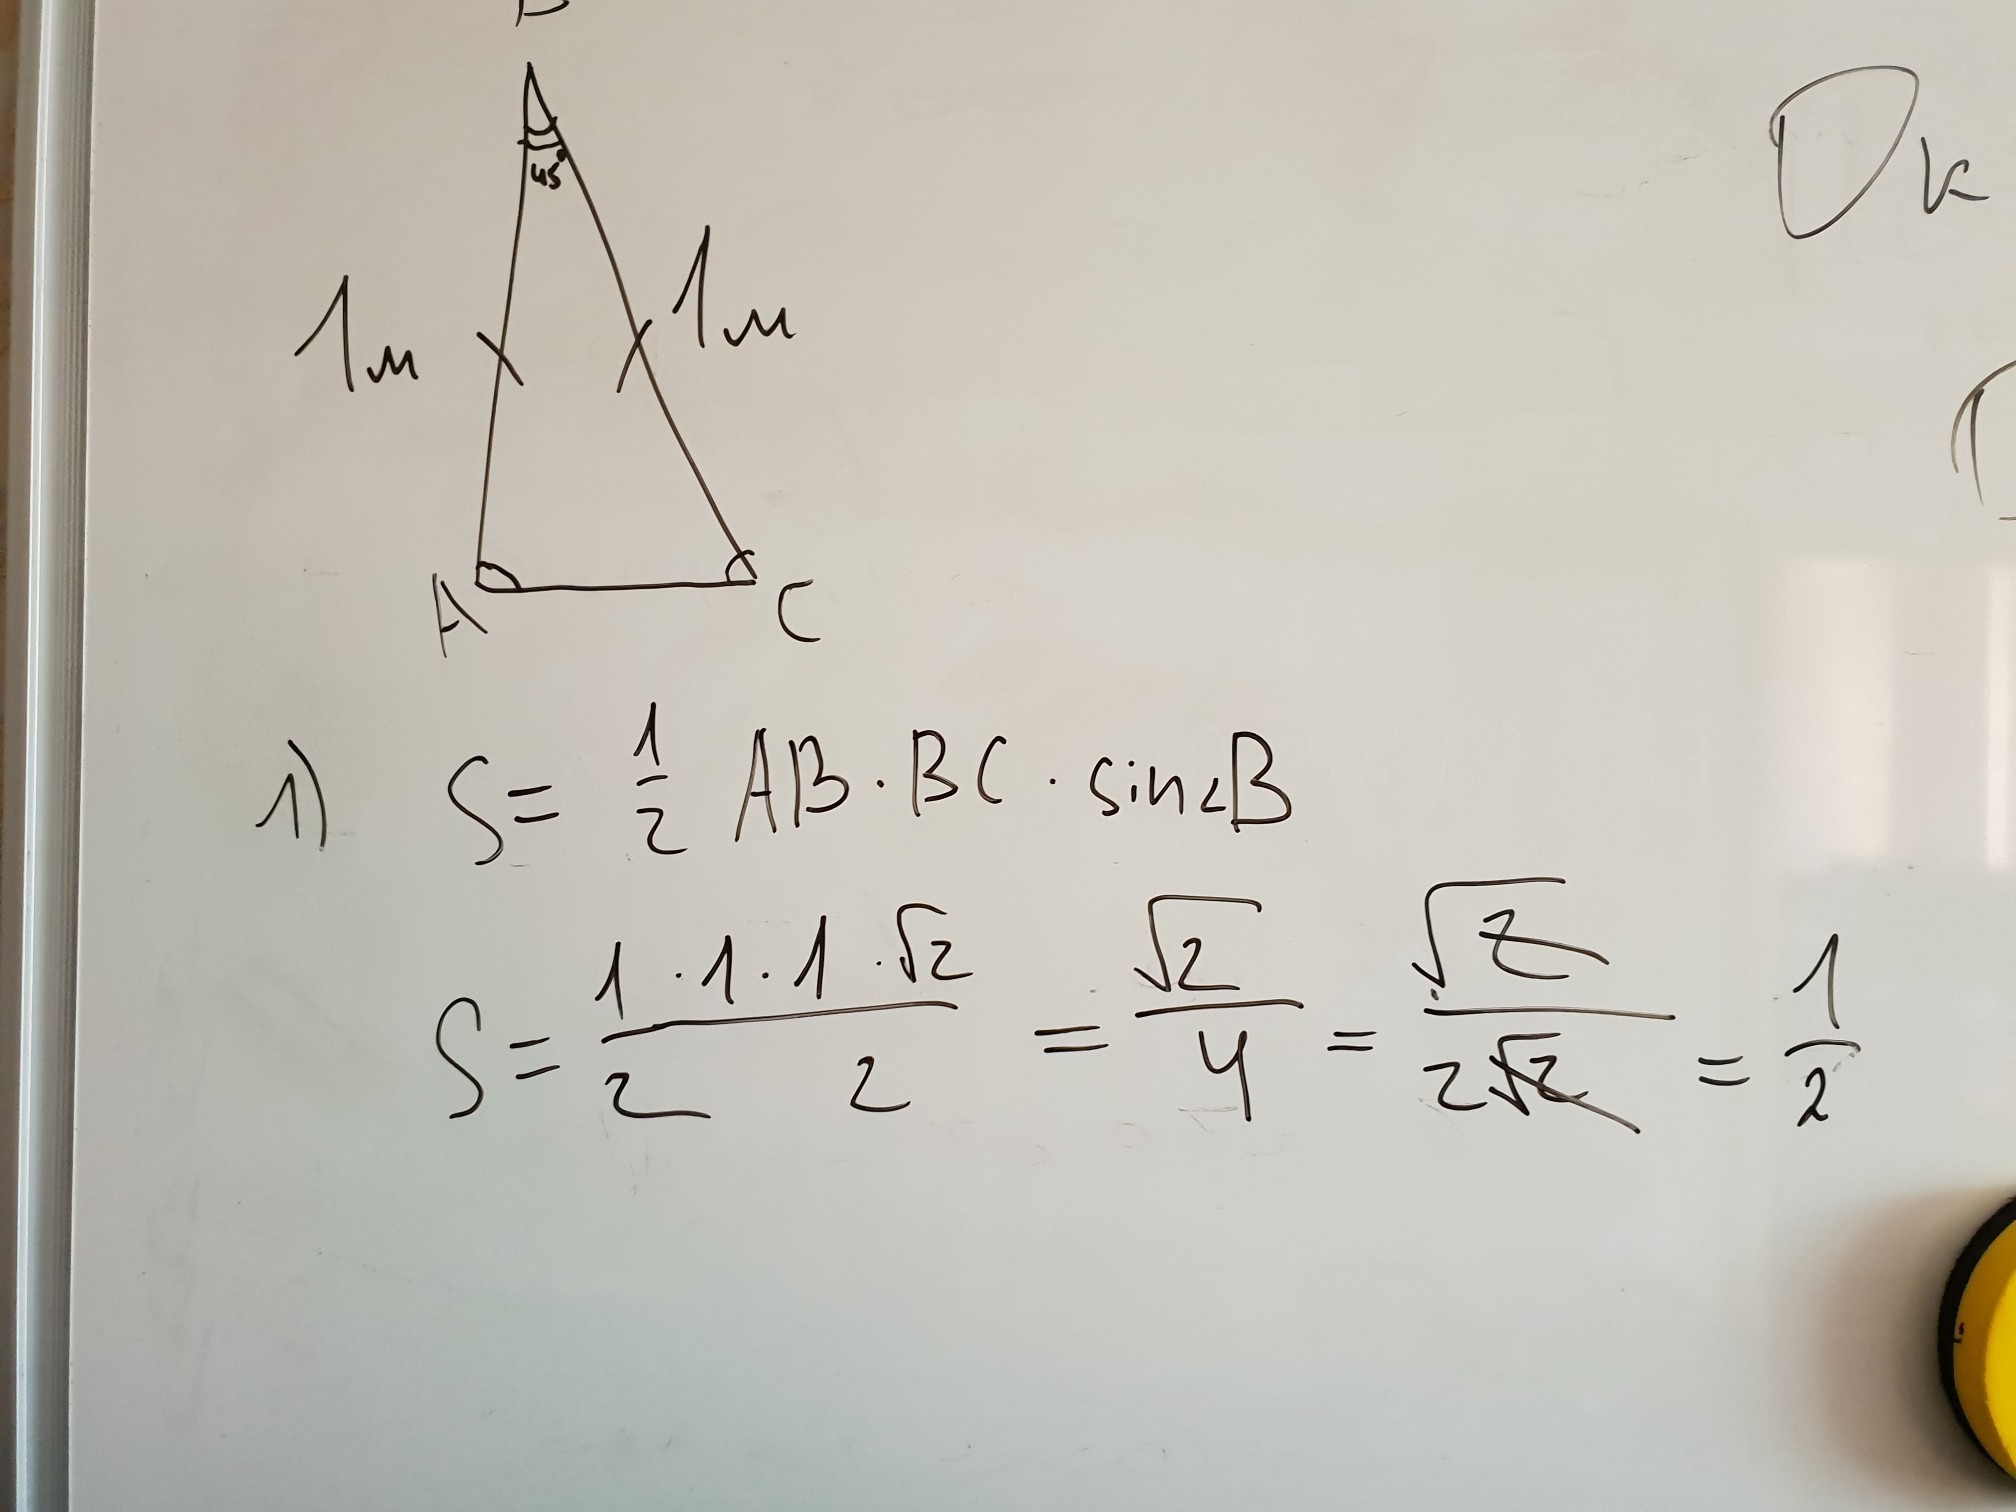 45°
1м
1м
A
C
Dк
1) S = 1/2 AB · BC · sin∠B
S = 1 · 1 · 1 · √2 / 2 2 = √2 / 4 = √2 / 2√2 = 1/2